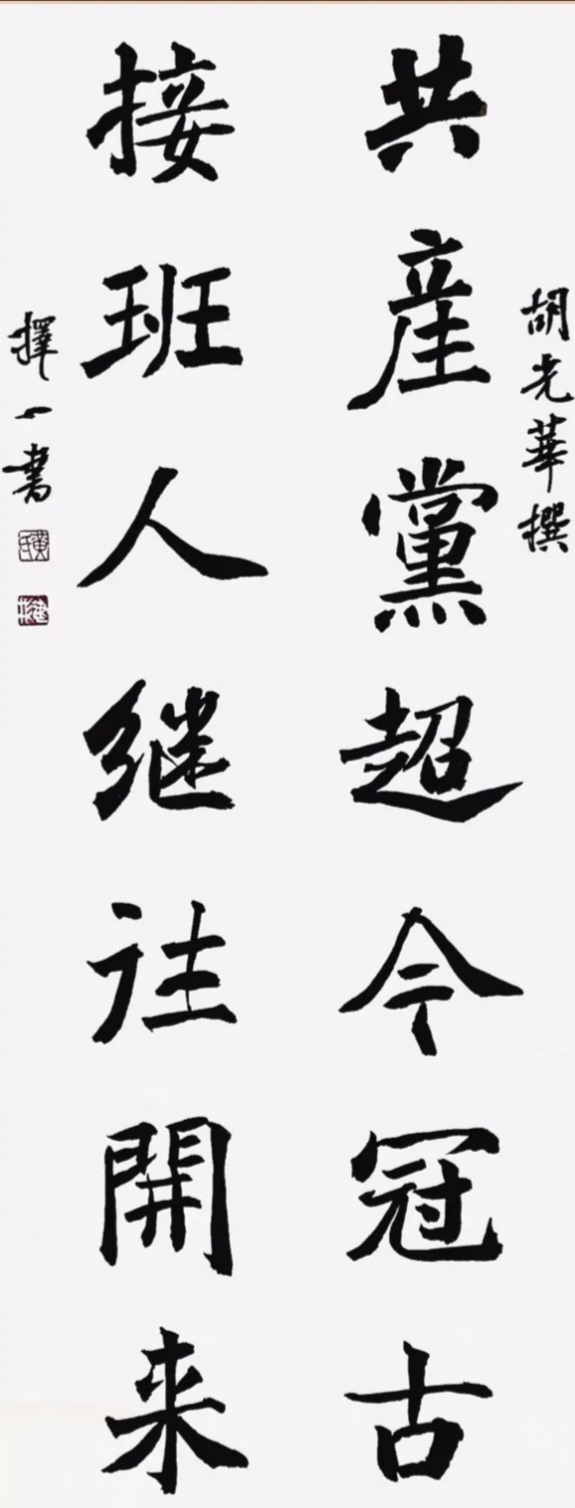 胡光華撰
共產黨超今冠古
接班人继往開来
擇一書